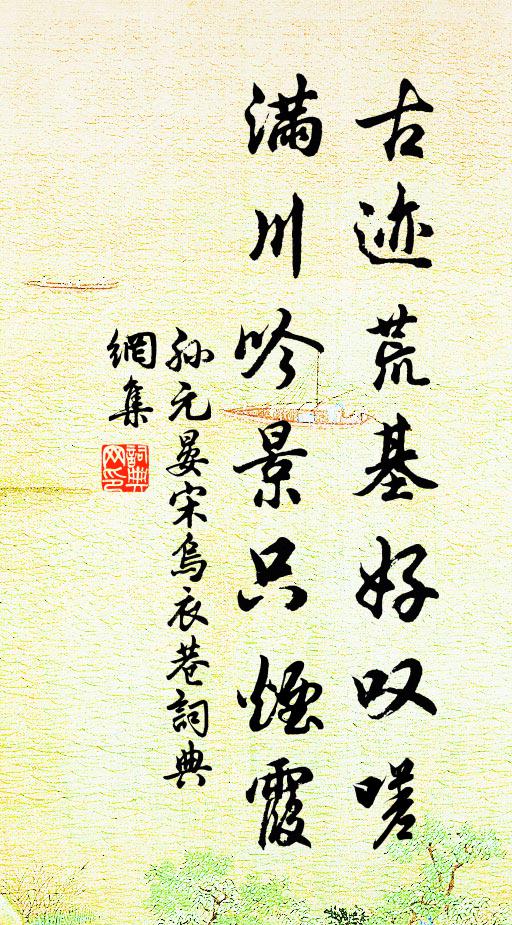 古迹荒基好叹嗟
满川吟景只烟霞
孙元晏宋乌衣巷詞典
網集
詞典
网印